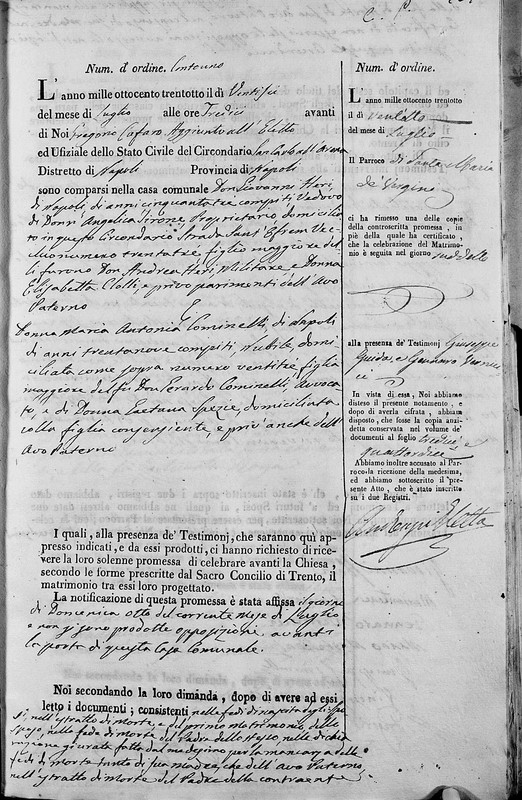 Num. d'ordine. Centouno
L'anno mille ottocento trentotto il dì Ventisei
del mese di Luglio alle ore Tredici avanti
di Noi Gregorio Cafaro Aggiunto all'Eletto
ed Ufiziale dello Stato Civile del Circondario San Carlo all'Arena
Distretto di Napoli Provincia di Napoli
sono comparsi nella casa comunale Don Giovanni Heri,
di Napoli, di anni cinquantatre compiti, Vedovo
di Donn'Angelica Tirone, Proprietario, domicilia
to in questo Circondario Strada Sant'Efrem Vec-
chio numero trentatre, figlio maggiore del
li furono Don Andrea Heri, Militare, e Donna
Elisabetta Clolli, e privo parimenti dell'Avo
Paterno
E
Donna Maria Antonia Cominelli, di Napoli
di anni trentanove compiti, Nubile, domi
ciliata come sopra numero ventitre, figlia
maggiore del fu Don Erardo Cominelli, Avvoca
to, e di Donna Gaetana Spezie, domiciliata
colla figlia consenziente, e priva anche dell'
Avo Paterno
I quali, alla presenza de' Testimonj, che saranno quì ap-
presso indicati, e da essi prodotti, ci hanno richiesto di rice-
vere la loro solenne promessa di celebrare avanti la Chiesa,
secondo le forme prescritte dal Sacro Concilio di Trento, il
matrimonio tra essi loro progettato.
La notificazione di questa promessa è stata affissa il giorno
di Domenica otto del corrente Mese di Luglio
e non vi sono prodotte opposizione avanti
la porta di questa Casa Comunale.
Noi secondando la loro dimanda, dopo di avere ad essi
letto i documenti; consistenti nelle fedi di nascita degli spo
si, nell'estratto di morte, e del primo matrimonio dello
sposo, nella fede di morte del Padre dello stesso, nelle dichia
razione giurate fatta dal medesimo per la mancanza delle
fedi di morte tanto di sua madre, che dell'Avo Paterno
nell'estratto di morte del Padre della contraente
Num. d'ordine.
L'anno mille ottocento trentotto
il dì ventotto
del mese di Luglio
Il Parroco di Santa Maria
de' Vergini
ci ha rimesso una delle copie
della controscritta promessa, in
piè della quale ha certificato,
che la celebrazione del Matrimo-
nio è seguita nel giorno suddetto
alla presenza de' Testimonj Giuseppe
Guida, e Gennaro
In vista di essa, Noi abbiamo
disteso il presente notamento, e
dopo di averla cifrata, abbiam
disposto, che fosse la copia anzi-
detta conservata nel volume de'
documenti al foglio tredici e
quattordici
Abbiamo inoltre accusato al Par-
roco la ricezione della medesima,
ed abbiamo sottoscritto il pre-
sente Atto, che è stato inscritto
su i due Registri.